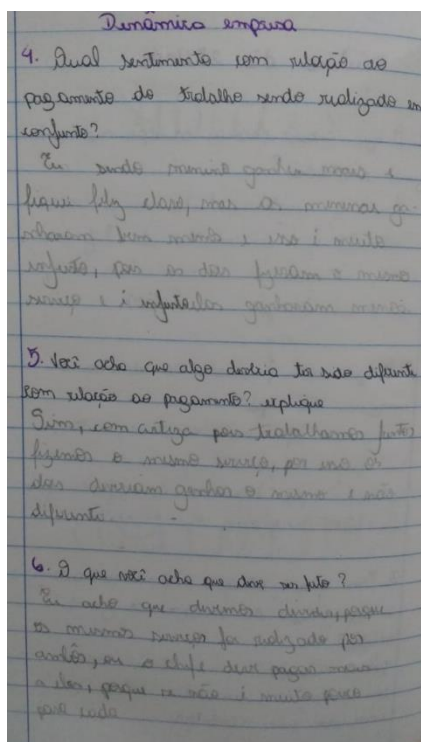 Dinâmica empresa
4. Qual sentimento com relação ao
pagamento do trabalho sendo realizado em
conjunto?
Eu sendo menino ganhei mais e
fiquei feliz claro, mas as meninas ga-
nharam bem menos e isso é muito
injusto, pois os dois fizeram o mesmo
serviço e é injusto elas ganharam menos
5. Você acha que algo deveria ter sido diferente
com relação ao pagamento? explique
Sim, com certeza pois trabalhamos juntos
fizemos o mesmo serviço, por isso os
dois deveriam ganhar o mesmo e não
diferente.
6. O que você acha que deve ser feito?
Eu acho que devemos dividir, porque
os mesmos serviços foi realizado por
ambos, ou o chefe deve pagar mais
a elas, porque se não é muito pouco
para cada